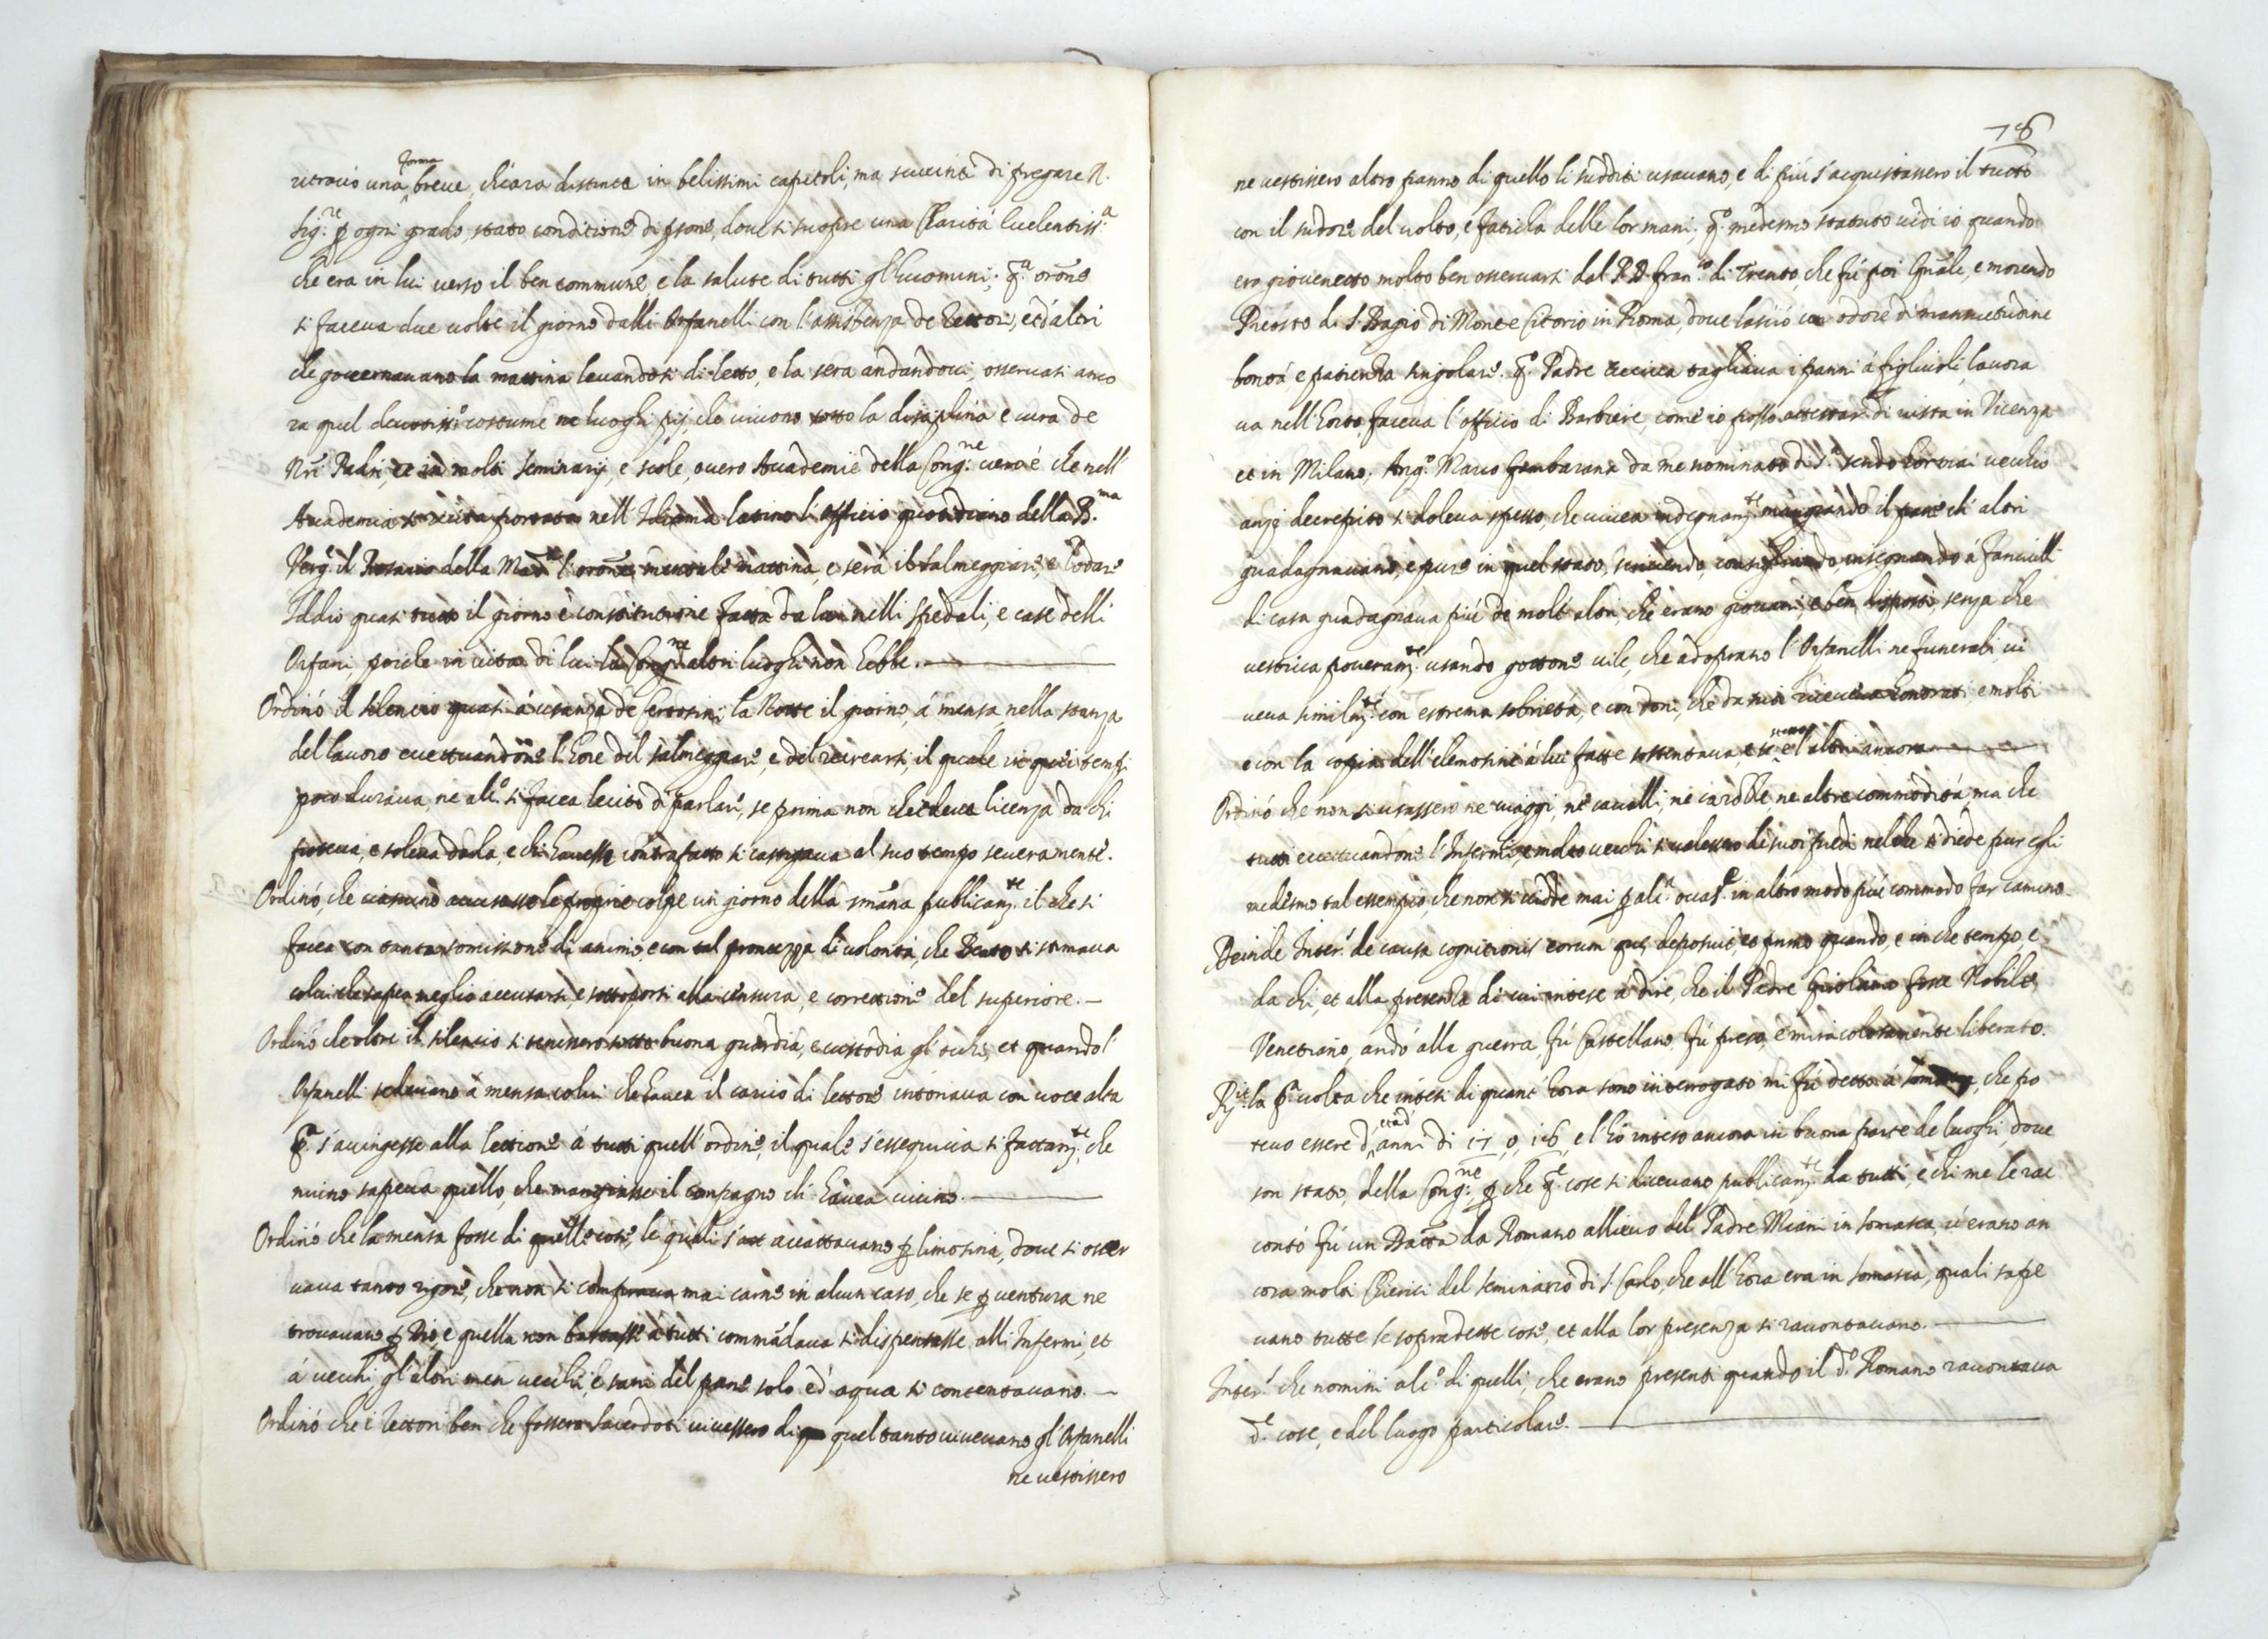 ritrovò una forma breve, chiara distinta in belissimi capitoli, ma succinti di pregare N.
Sig.re p ogni grado, stato conditione di psone, dove si scopre una Charità
che era in lui verso il ben commune, e la salute di tutti gl'huomini; q.a oroñe
si faceva due volte il giorno dalli Orfanelli con l'assistenza de lettori, et d'altri
che governavano la mattina levandosi di letto, e la sera andandovi, osservasi anco
ra quel devotiss.o costume ne luoghi pij, che vivono sotto la disciplina e cura de
Nri Padri, et in molti seminarij, e scole, overo Academie della Cong.ne vero é che nell'
Academia si recita nell'Idioma latino l'officio quotidiano della B.ma
Verg.e il Rosario della Mad.a l'oroñe mentale mattina, e sera il salmeggiare, e lodare
Iddio quasi tutto il giorno è constitutione fatta da lui nelli spedali, e case delli
Orfani, poiche in vita di lui la Cong.ne altri luoghi non hebbe.
Ordinó il silencio quasi á usanza de Certosini la Notte il giorno, á mensa nella stanza
del lavoro eccettuandone l'hore del salmeggiare, e del recrearsi, il quale in quei tempi
poco durava, ne alc.o si facea lecito di parlare, se prima non chiedeva licenza da chi
poteva, e soleva darla, e chi havesse contrafatto si castigava al suo tempo severamente.
Ordinó, che ciascuno accusasse le proprie colpe un giorno della smãna publicam.te il che si
facea con tanta somissione di animo, e con tal prontezza di volontá, che Beato si stimava
colui che sapea meglio accusarsi, e sottoporsi alla censura, e correttione del superiore.
Ordinó che oltre il silencio si tenissero sotto buona guardia, e custodia gl'occhi, et quando l'
Orfanelli sedevano á mensa colui che havea il carico di lettore intonava con voce alta
p.a s'accingesse alla lettione á tutti quell'ordine, il quale s'esseguiva si fattam.te, che
niuno sapeva quello, che mangiasse il compagno ch'havea vicino.
Ordinó che la mensa fosse di quelle cose, le quali s'acattavano p limosina, dove si osser
vava tanto rigore, che non si comprava mai carne in alcun caso, che se p ventura ne
trovavano p Dio, e quella non bastasse á tutti commãdava si dispensasse alli Infermi, et
á vechi, gl'altri men vecchi, e sani del pane solo ed aqua si contentavano.
Ordinó che i lettori ben che fossero sacerdoti vivessero di quel tanto vivevano gl'Orfanelli
ne vestissero
76
ne vestissero altro panno di quello li sudditi usavano, e di piú s'acquistassero il tutto
con il sudore del volto, e faticha delle lor mani; q.o medesmo statuto vidi io quando
ero giovenetto molto ben osservarsi dal P. D. Fran.co di Trento, che fú poi Gñale, e morendo
Preosto di S. Biagio di Monte Citorio in Roma, dove lasció odore di mansuetudine
bontá e patienza singolare. q.o Padre tagliava i panni á figliuoli, lavora
va nell'horto, faceva l'officio di Barbiere, come io posso attestare di vista in Vicenza
et in Milano; Ang.o Marco Gambarana da me nominato di s.a sendo hormai vecchio
anzi decrepito si doleva spesso, che vivea indegnam.te mangiando il pane ch'altri
guadagnavano, e pure in quel stato, scrivendo, consigliando, insegnando á fanciulli
di casa guadagnava piú de molt'altri, che erano giovani, e ben disposti, senza che
vestiva poveram.te usando gottone vile, che adoprano l'Orfanelli ne funerali, vi
veva similm.te con estrema sobrietá, e con doni, che da suoi riceveva honorati, e molti
e con la copia dell'elemosine á lui fatte sostentava, e se stesso e l'altri ancora
Ordinó che non si usassero ne viaggi, né cavalli, né carozze, ne altre commoditá, ma che
tutti eccettuandone l'Infermi, e molto vecchi si valessero de suoi piedi nel che diede pur egli
medesmo tal essempio, che non si vidde mai p alc.a in altro modo piú commodo far camino
Deinde Inter.s de causa cognitionis eorum que deposuit, et primo quando, e in che tempo, e
da chi, et alla presenza di cui intese a dire, che il Padre Girolamo fosse Nobile
Venetiano, andó alla guerra, fú Castellano, fú preso, e miracolosamente liberato.
R.it la p.a volta che intesi di quant'hora sono interrogato mi fú detto á Somasca, che po
tevo essere d'etá d'anni di 15, o, 16, e l'hó inteso ancora in buona parte de luoghi, dove
son stato, della Cong.ne, p che q.e cose si dicevano publicam.te da tutti, e chi me le rac
contó fú un Batta da Romano allievo del Padre Miani in Somasca, v'erano an
cora molti Chierici del seminario di S. Carlo, che all'hora era in Somasca, quali sape
vano tutte le sopradette cose, et alla lor presenza si raccontavano.
Inter.s che nomini alc.o di quelli, che erano presenti quando il d.o Romano raccontava
d.e cose, e del luogo particolare.